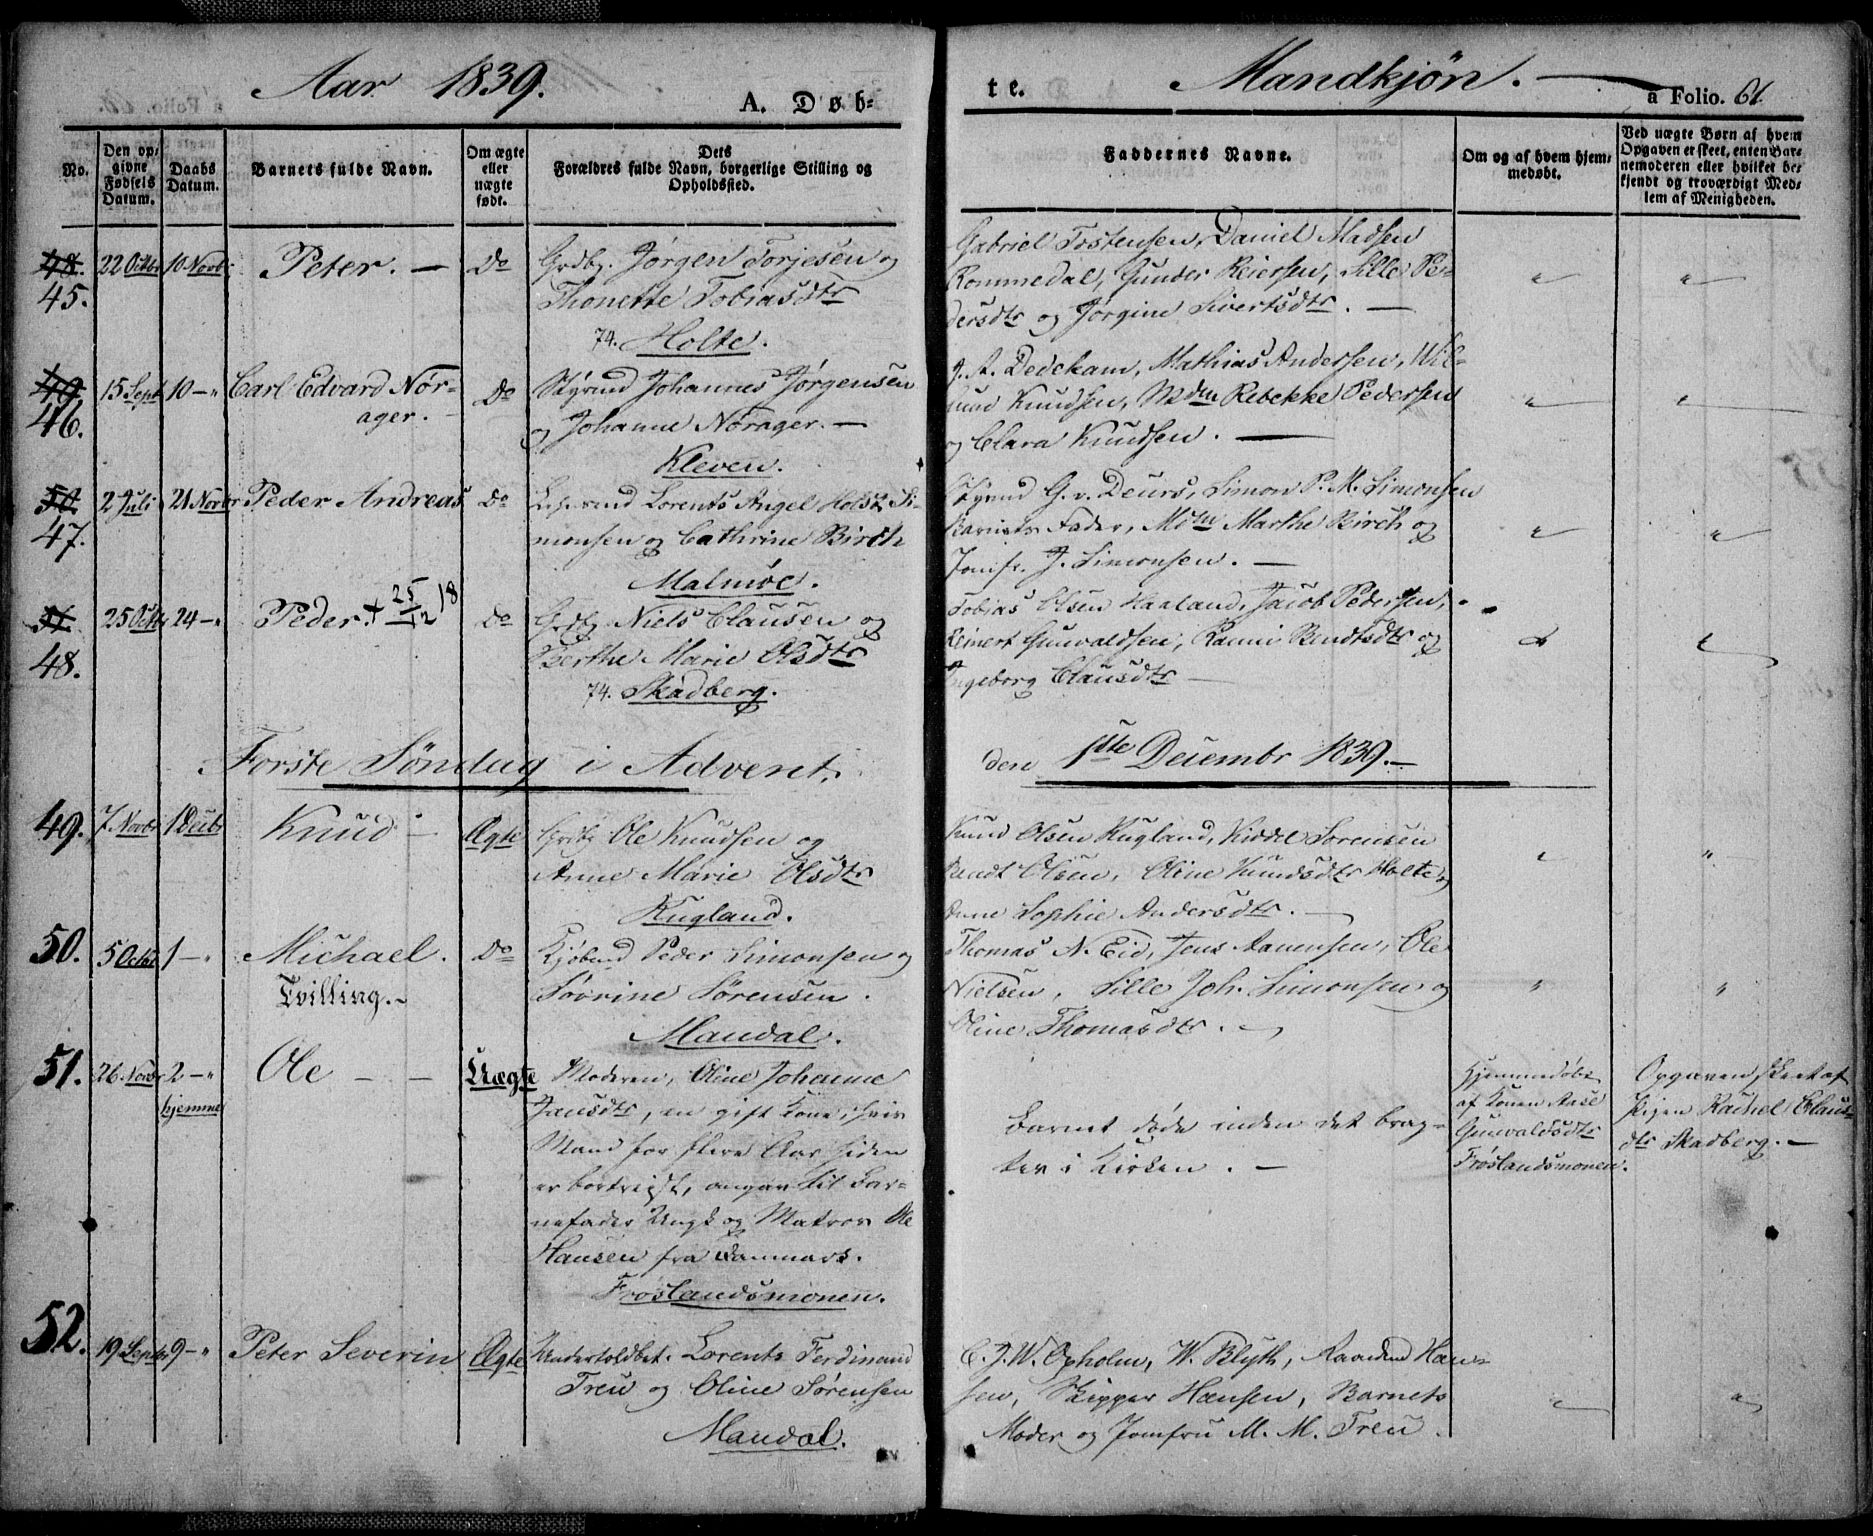 Aar 1839.
A. Døb-
te.
Mandkjøn.
a Folio. 61
No.
Den op-
givne
Fødsels
Datum.
Daabs
Datum.
Barnets fulde Navn.
Om ægte
eller
uægte
født.
Dets
Forældres fulde Navn, borgerlige Stilling og
Opholdssted.
Faddernes Navne.
Om og af hvem hjem-
medøbt.
Ved uægte Børn af hvem
Opgaven er skeet, enten Bar-
nemoderen eller hvilket be-
kjendt og troværdigt Med-
lem af Menigheden.
48. 22 Octbr 10 Novbr Peter. — Do Grdbg. Jørgen Torjesen og
45. Thonette Tobiasdtr
74. Holte.
Gabriel Tostensen, Daniel Madsen
Rommedal, Gunder Reiersen, Sille Pe-
dersdtr og Jørgine Sivertsdtr. —
49. 15 Sept 10 — " Carl Edvard Nør- Do Styrmd Johannes Jørgensen
46. ager. og Johanne Nørager. —
Kleven.
J. A. Dedekam, Mathias Andersen, Wil-
Knudsen, Mdm Rebekke Pedersen
og Clara Knudsen. —
50. 2 Juli 21 Novbr Peder Andreas Do Lorents Angel Holst Si-
47. monsen og Cathrine Birch
Malmøe.
Styrmd G. v. Deurs, Simon P. M. Simonsen
Barnets Fader, Mdm Marthe Birch og
Jomfr. J. Simonsen. —
51. 25 Octbr 24 — " Peder. + 25/12 18 Do Grdbg Niels Clausen og
48. Berthe Marie Olsdtr
74. Skadberg.
Tobias Olsen Haaland, Jacob Pedersen,
Reinert Gunvaldsen, Ranni Bendtsdtr og
Ingeborg Clausdtr —
Forste Søndag i Advent,
den 1ste Decembr 1839. —
49. 7 Novbr 1 Decbr Knud — Ægte Grdbg Ole Knudsen og
Anne Marie Olsdtr
Rugland.
Knud Olsen Rugland, Kiddel Sørensen
Bendt Olsen, Oline Knudsdtr Holte og
Anne Sophie Andersdtr. —
50. 5 Octbr 1 — " Michael. Do Kjøbmd Peder Simonsen og
Tvilling. — Sövrine Sørensen.
Mandal.
Thomas N. Eid, Jens Aanensen, Ole
Nielsen, Sille Joh. Simonsen og
Oline Thomasdtr. —
51. 26 Novbr 2 — " Ole — — Uægte Moderen, Oline Johanne
hjemme Jansdtr, en gift Kone, hvis
Mand for flere Aar siden
er bortreist, angav til Bar-
nefader Ungk og Matros Ole
Hansen fra Danmark.
Frøslandsmonen.
Barnet døde inden det brag-
tes i Kirken. —
Hjemmedøbt
af Konen Aase
Gunvaldsdtr
Frøslandsmonen.
Opgaven skeet af
Pigen Rachel Claus-
dtr Skadberg. —
52. 19 Septbr 9 — " Peter Severin Ægte Undertoldbet. Lorents Ferdinand
Treu og Oline Sørensen
Mandal.
C. J. W. Opholm, W. Blyth, Han-
sen, Skipper Hansen, Barnets
Moder og Jomfru M. M. Treu.